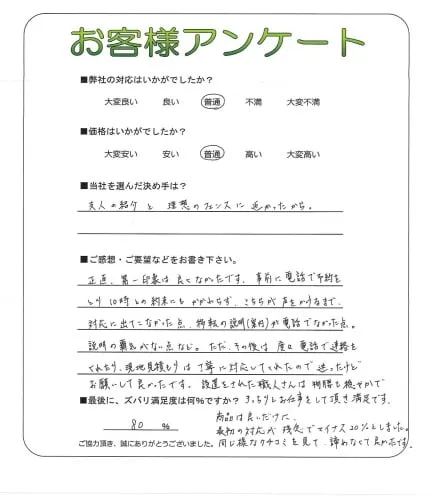 お客様アンケート
■弊社の対応はいかがでしたか？
大変良い 良い 普通 不満 大変不満
■価格はいかがでしたか？
大変安い 安い 普通 高い 大変高い
■当社を選んだ決め手は？
夫人の紹介と 理想のフェンスに近かったから。
■ご感想・ご要望などをお書き下さい。
正直、第一印象は良くなかったです。事前に電話で予約を
とり 10時との約束にもかかわらず、こちらが声をかけるまで、
対応に出てこなかった点、移転の説明(案内)が電話でなかった点。
説明の覇気がない点など。ただ、その後は 度々電話で連絡を
くれたり、現地見積もりは丁寧に対応してくれたので迷ったけど
お願いして良かったです。設置をされた職人さんは 物腰も穏やかで
■最後に、ズバリ満足度は何％ですか？ きっちりとお仕事をして頂き満足です。
商品は良いだけに、
80 ％ 最初の対応が残念でマイナス20％としました。
ご協力頂き、誠にありがとうございました。 同じ様なクチコミを見て、諦めなくて良かったです。